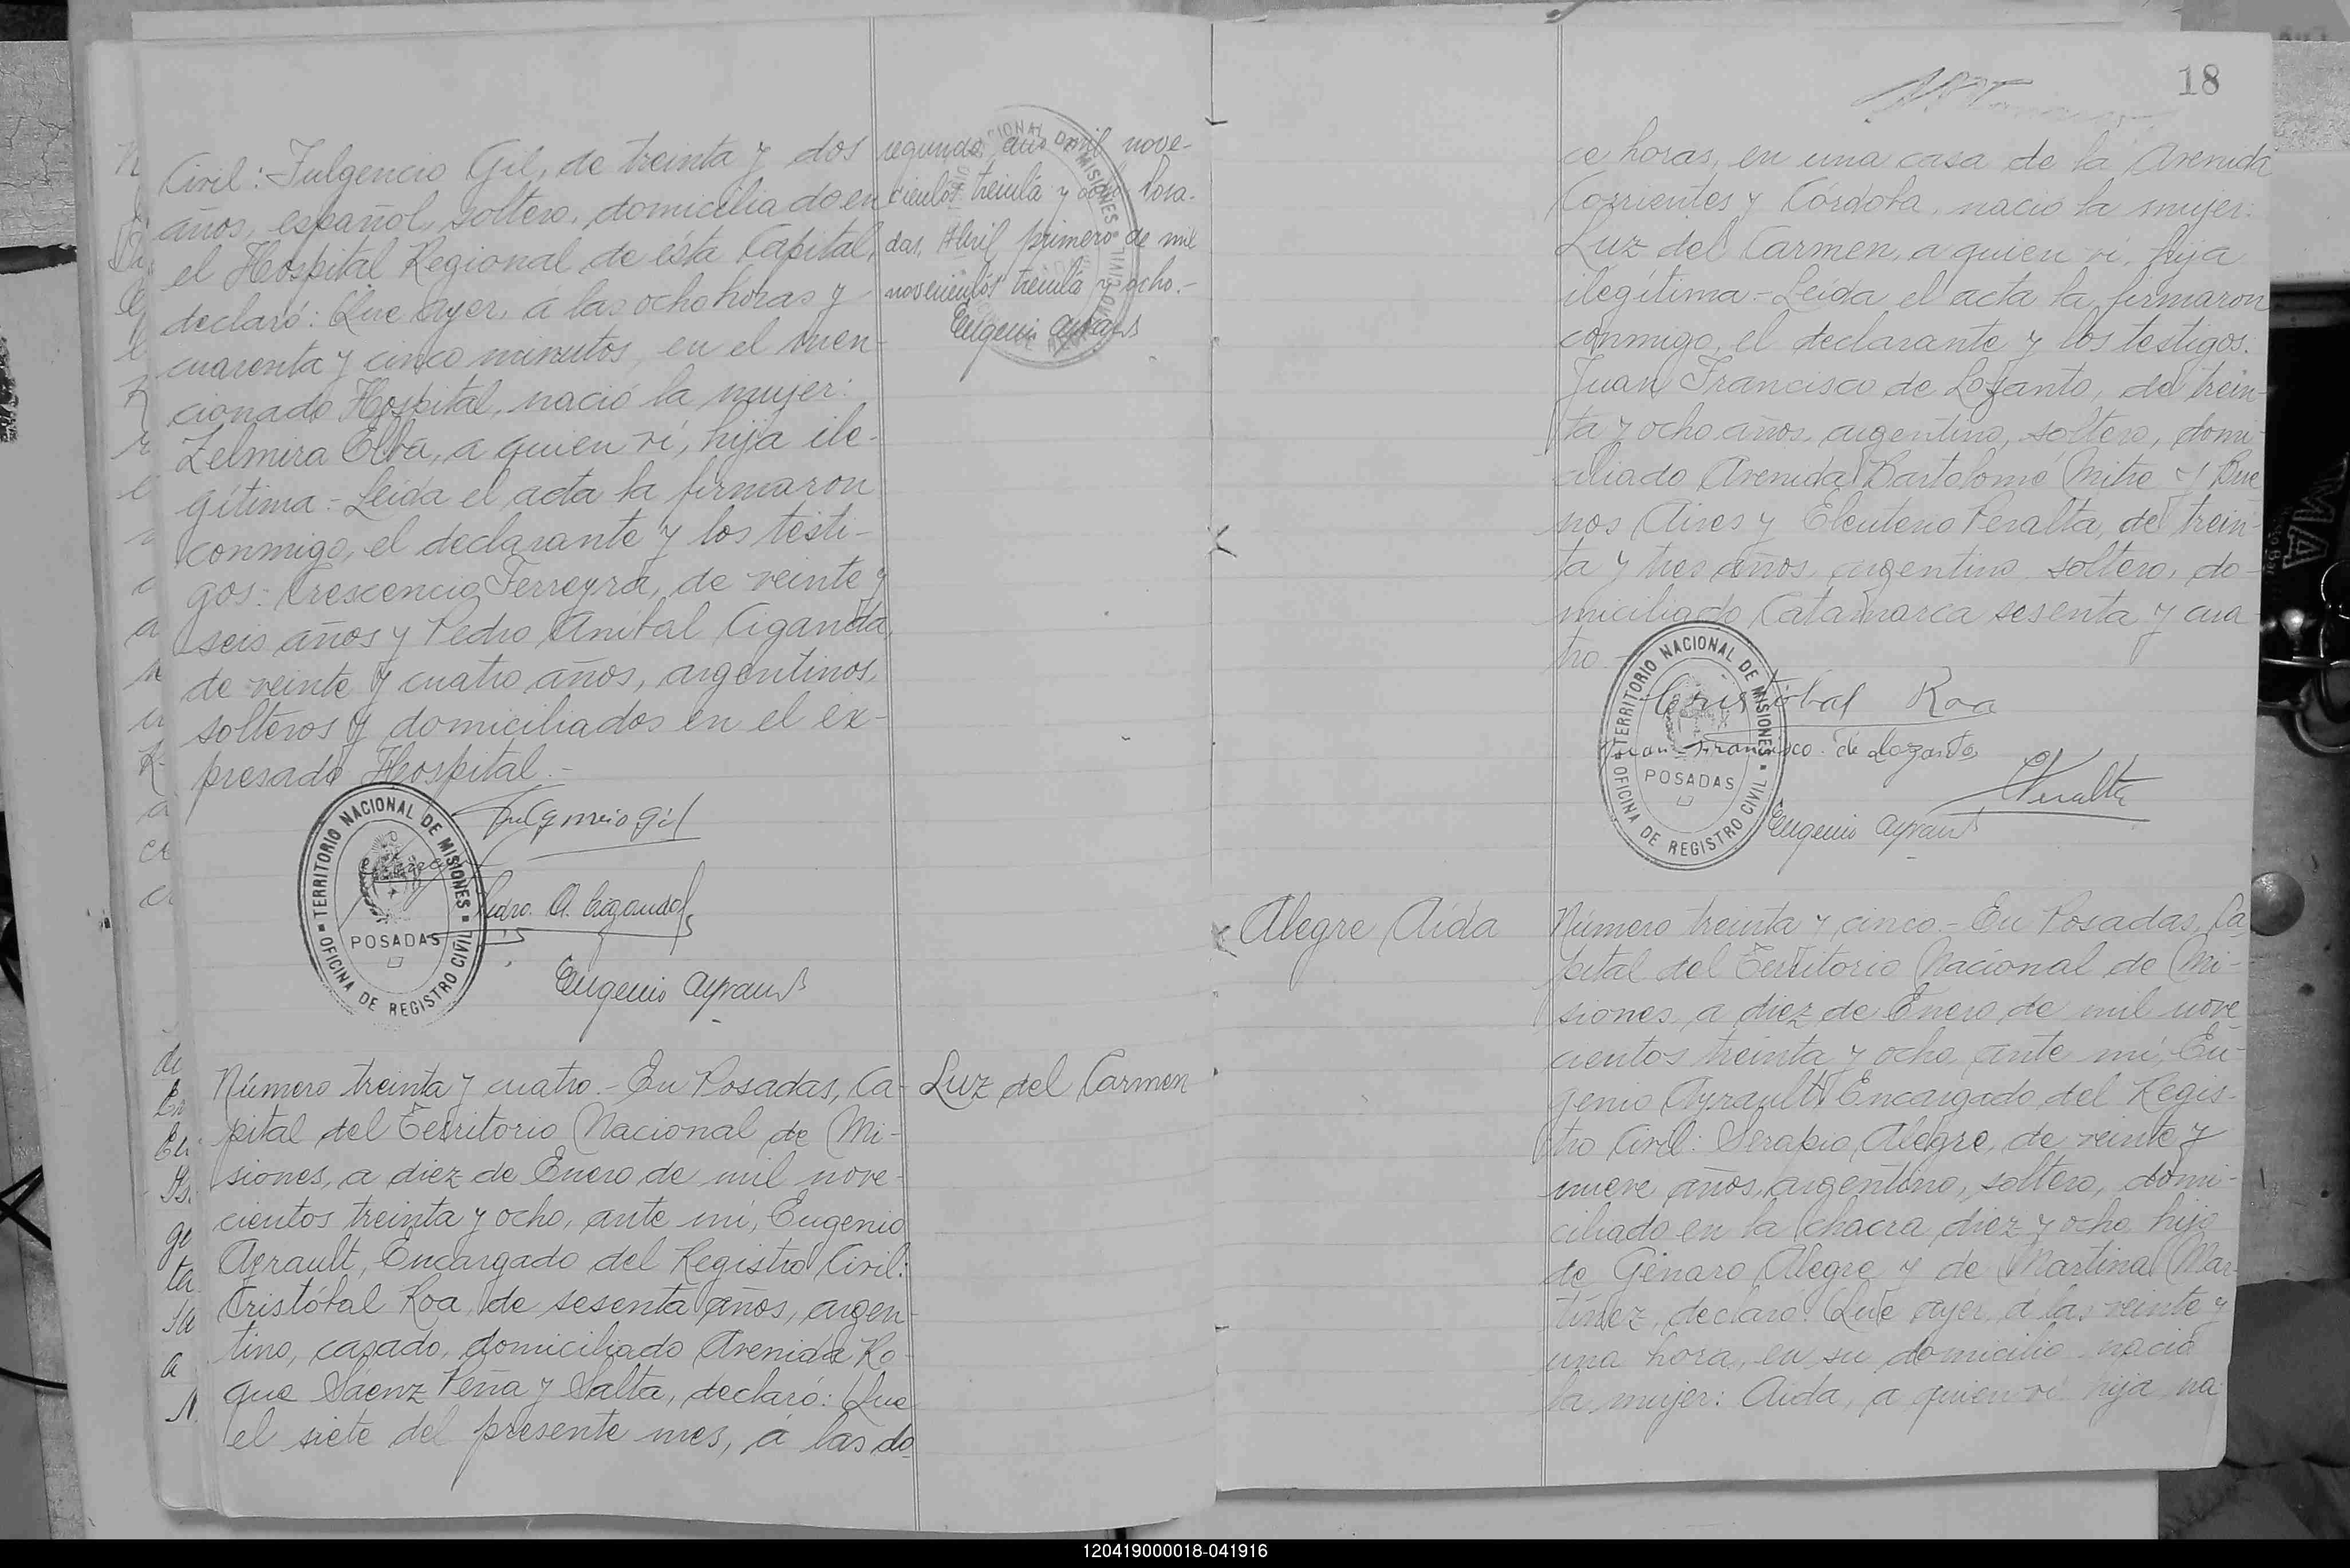 Civil: Fulgencio Gil, de treinta y dos
años, español, soltero, domiciliado en
el Hospital Regional de ésta Capital,
declaró: Que ayer, á las ocho horas y
cuarenta y cinco minutos, en el men-
cionado Hospital, nació la mujer:
Zelmira Elba, a quien ví, hija ile-
gítima.- Leída el acta la firmaron
conmigo, el declarante y los testi-
gos: Crescencio Ferreyra, de veinte y
seis años y Pedro Anibal Ciganda,
de veinte y cuatro años, argentinos,
solteros y domiciliados en el ex-
presado Hospital.-
Fulgencio Gil
Pedro A. Ciganda
Eugenio Ayrault
TERRITORIO NACIONAL DE MISIONES
POSADAS
OFICINA DE REGISTRO CIVIL
segunda, año mil nove-
cientos treinta y ocho. Posa-
das, Abril primero de mil
novecientos treinta y ocho.-
Eugenio Ayrault
Luz del Carmen
Número treinta y cuatro.- En Posadas, Ca-
pital del Territorio Nacional de Mi-
siones, a diez de Enero de mil nove-
cientos treinta y ocho, ante mí, Eugenio
Ayrault, Encargado del Registro Civil:
Cristóbal Roa, de sesenta años, argen-
tino, casado, domiciliado Avenida Ro-
que Sáenz Peña y Salta, declaró: Que
el siete del presente mes, á las do-
18
ce horas, en una casa de la Avenida
Corrientes y Córdoba, nació la mujer:
Luz del Carmen, a quien ví, hija
ilegítima.- Leída el acta la firmaron
conmigo, el declarante y los testigos:
Juan Francisco de Lozanto, de trein-
ta y ocho años, argentino, soltero, domi-
ciliado Avenida Bartolomé Mitre y Bue-
nos Aires y Eleuterio Peralta, de trein-
ta y tres años, argentino, soltero, do-
miciliado Catamarca sesenta y cua-
tro.-
Cristóbal Roa
Juan Francisco de Lozanto
EPeralta
Eugenio Ayrault
TERRITORIO NACIONAL DE MISIONES
POSADAS
OFICINA DE REGISTRO CIVIL
Alegre Aída
Número treinta y cinco.- En Posadas, Ca-
pital del Territorio Nacional de Mi-
siones, a diez de Enero de mil nove-
cientos treinta y ocho, ante mí, Eu-
genio Ayrault, Encargado del Regis-
tro Civil: Serapio Alegre, de veinte y
nueve años, argentino, soltero, domi-
ciliado en la chacra diez y ocho, hijo
de Genaro Alegre y de Martina Mar-
tínez, declaró: Que ayer, á las veinte y
una hora, en su domicilio nació
la mujer: Aída, a quien ví hija na-
120419000018-041916